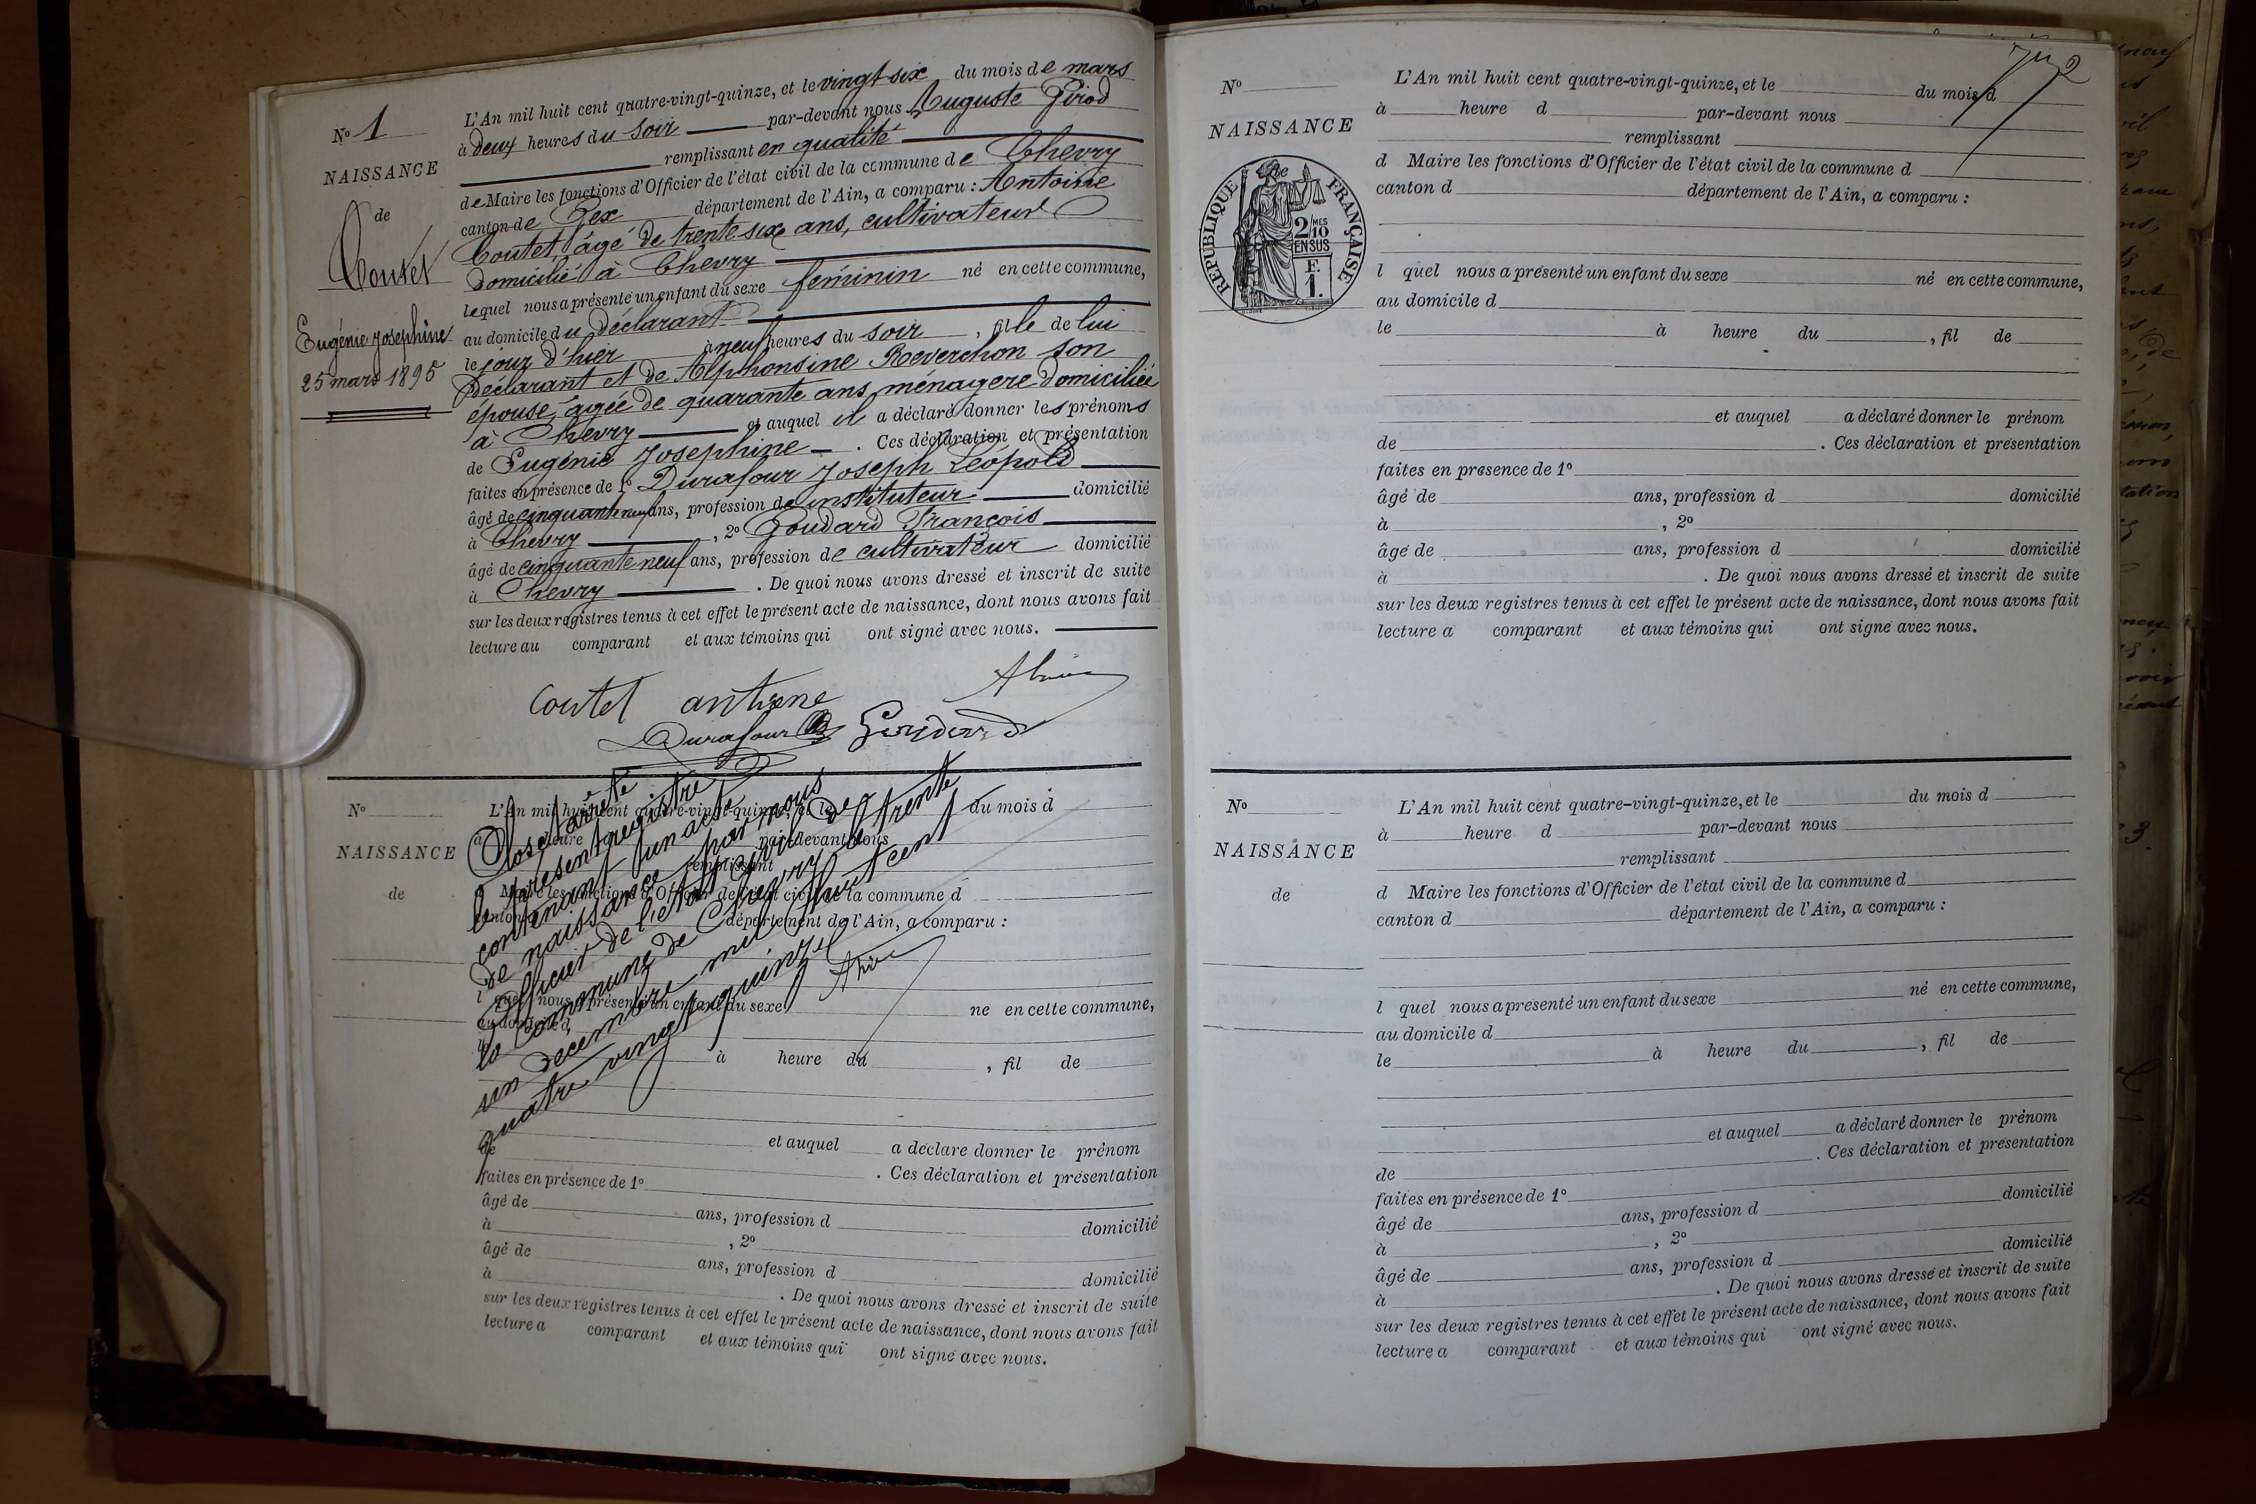 N° 1
NAISSANCE
de
Coutet
Eugénie Josephine
25 mars 1895
L'An mil huit cent quatre-vingt-quinze, et le vingt-six du mois de mars
à deux heures du soir par-devant nous Auguste Girod
remplissant en qualité
de Maire les fonctions d'Officier de l'état civil de la commune de Chevry
canton de Gex département de l'Ain, a comparu : Antoine
Coutet, âgé de trente six ans, cultivateur
domicilié à Chevry
lequel nous a présenté un enfant du sexe féminin né en cette commune,
au domicile du déclarant
le jour d'hier à neuf heures du soir, fille de lui
déclarant et de Alphonsine Reverchon son
épouse, âgée de quarante ans, ménagère domiciliée
à Chevry et auquel il a déclaré donner les prénoms
de Eugénie Josephine. Ces déclaration et présentation
faites en présence de 1° Durafour Joseph Léopold
âgé de cinquante neuf ans, profession de instituteur domicilié
à Chevry, 2° Goudard François
âgé de cinquante neuf ans, profession de cultivateur domicilié
à Chevry. De quoi nous avons dressé et inscrit de suite
sur les deux registres tenus à cet effet le présent acte de naissance, dont nous avons fait
lecture au comparant et aux témoins qui ont signé avec nous.
Coutet antoine
Durafour Goudard
N°
NAISSANCE
de
L'An mil huit cent quatre-vingt-quinze, et le du mois d
à heure par-devant nous
remplissant
Maire les fonctions d'Officier de l'état civil de la commune d
canton d département de l'Ain, a comparu :
l quel nous a présenté un enfant du sexe né en cette commune,
au domicile d
le à heure du , fil de
et auquel a déclaré donner le prénom
de . Ces déclaration et présentation
faites en présence de 1°
âgé de ans, profession d domicilié
à , 2°
âgé de ans, profession d domicilié
à . De quoi nous avons dressé et inscrit de suite
sur les deux registres tenus à cet effet le présent acte de naissance, dont nous avons fait
lecture a comparant et aux témoins qui ont signé avec nous.
Clos et arrêté
le présent registre
contenant un acte
de naissance par nous
Officier de l'état civil de
la commune de Chevry le trente
un décembre mil huit cent
quatre vingt quinze
2
N°
NAISSANCE
de
RÉPUBLIQUE FRANÇAISE
2/10
MES
EN SUS
F.
1.
L'An mil huit cent quatre-vingt-quinze, et le du mois d
à heure d par-devant nous
remplissant
d Maire les fonctions d'Officier de l'état civil de la commune d
canton d département de l'Ain, a comparu :
l quel nous a présenté un enfant du sexe né en cette commune,
au domicile d
le à heure du , fil de
et auquel a déclaré donner le prénom
de . Ces déclaration et présentation
faites en présence de 1°
âgé de ans, profession d domicilié
à , 2°
âgé de ans, profession d domicilié
à . De quoi nous avons dressé et inscrit de suite
sur les deux registres tenus à cet effet le présent acte de naissance, dont nous avons fait
lecture a comparant et aux témoins qui ont signé avec nous.
N°
NAISSANCE
de
L'An mil huit cent quatre-vingt-quinze, et le du mois d
à heure d par-devant nous
remplissant
d Maire les fonctions d'Officier de l'état civil de la commune d
canton d département de l'Ain, a comparu :
l quel nous a présenté un enfant du sexe né en cette commune,
au domicile d
le à heure du , fil de
et auquel a déclaré donner le prénom
de . Ces déclaration et présentation
faites en présence de 1°
âgé de ans, profession d domicilié
à , 2°
âgé de ans, profession d domicilié
à . De quoi nous avons dressé et inscrit de suite
sur les deux registres tenus à cet effet le présent acte de naissance, dont nous avons fait
lecture a comparant et aux témoins qui ont signé avec nous.